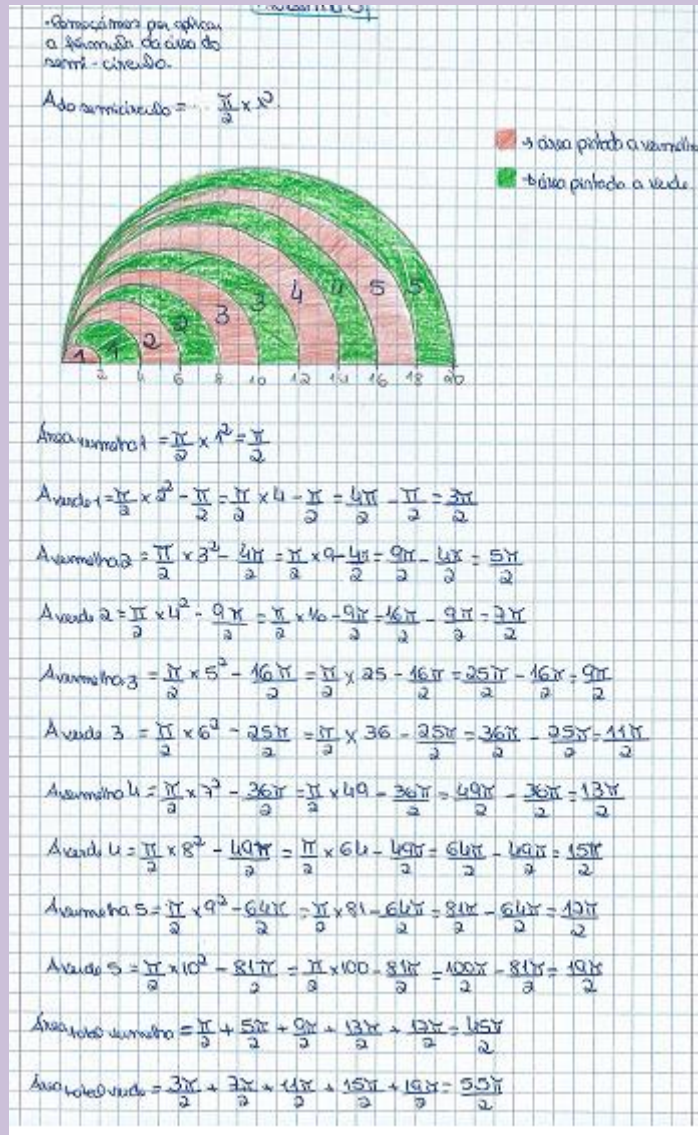 -Começámos por aplicar
a fórmula da área do
semi-círculo.
A do semicírculo = π/2 × r²
→ área pintada a vermelho
→ área pintada a verde
1 1 2 2 3 3 4 4 5 5
2 4 6 8 10 12 14 16 18 20
Área vermelha 1 = π/2 × 1² = π/2
A verde 1 = π/2 × 2² - π/2 = π/2 × 4 - π/2 = 4π/2 - π/2 = 3π/2
A vermelha 2 = π/2 × 3² - 4π/2 = π/2 × 9 - 4π/2 = 9π/2 - 4π/2 = 5π/2
A verde 2 = π/2 × 4² - 9π/2 = π/2 × 16 - 9π/2 = 16π/2 - 9π/2 = 7π/2
A vermelha 3 = π/2 × 5² - 16π/2 = π/2 × 25 - 16π/2 = 25π/2 - 16π/2 = 9π/2
A verde 3 = π/2 × 6² - 25π/2 = π/2 × 36 - 25π/2 = 36π/2 - 25π/2 = 11π/2
A vermelha 4 = π/2 × 7² - 36π/2 = π/2 × 49 - 36π/2 = 49π/2 - 36π/2 = 13π/2
A verde 4 = π/2 × 8² - 49π/2 = π/2 × 64 - 49π/2 = 64π/2 - 49π/2 = 15π/2
A vermelha 5 = π/2 × 9² - 64π/2 = π/2 × 81 - 64π/2 = 81π/2 - 64π/2 = 17π/2
A verde 5 = π/2 × 10² - 81π/2 = π/2 × 100 - 81π/2 = 100π/2 - 81π/2 = 19π/2
Área total vermelha = π/2 + 5π/2 + 9π/2 + 13π/2 + 17π/2 = 45π/2
Área total verde = 3π/2 + 7π/2 + 11π/2 + 15π/2 + 19π/2 = 55π/2